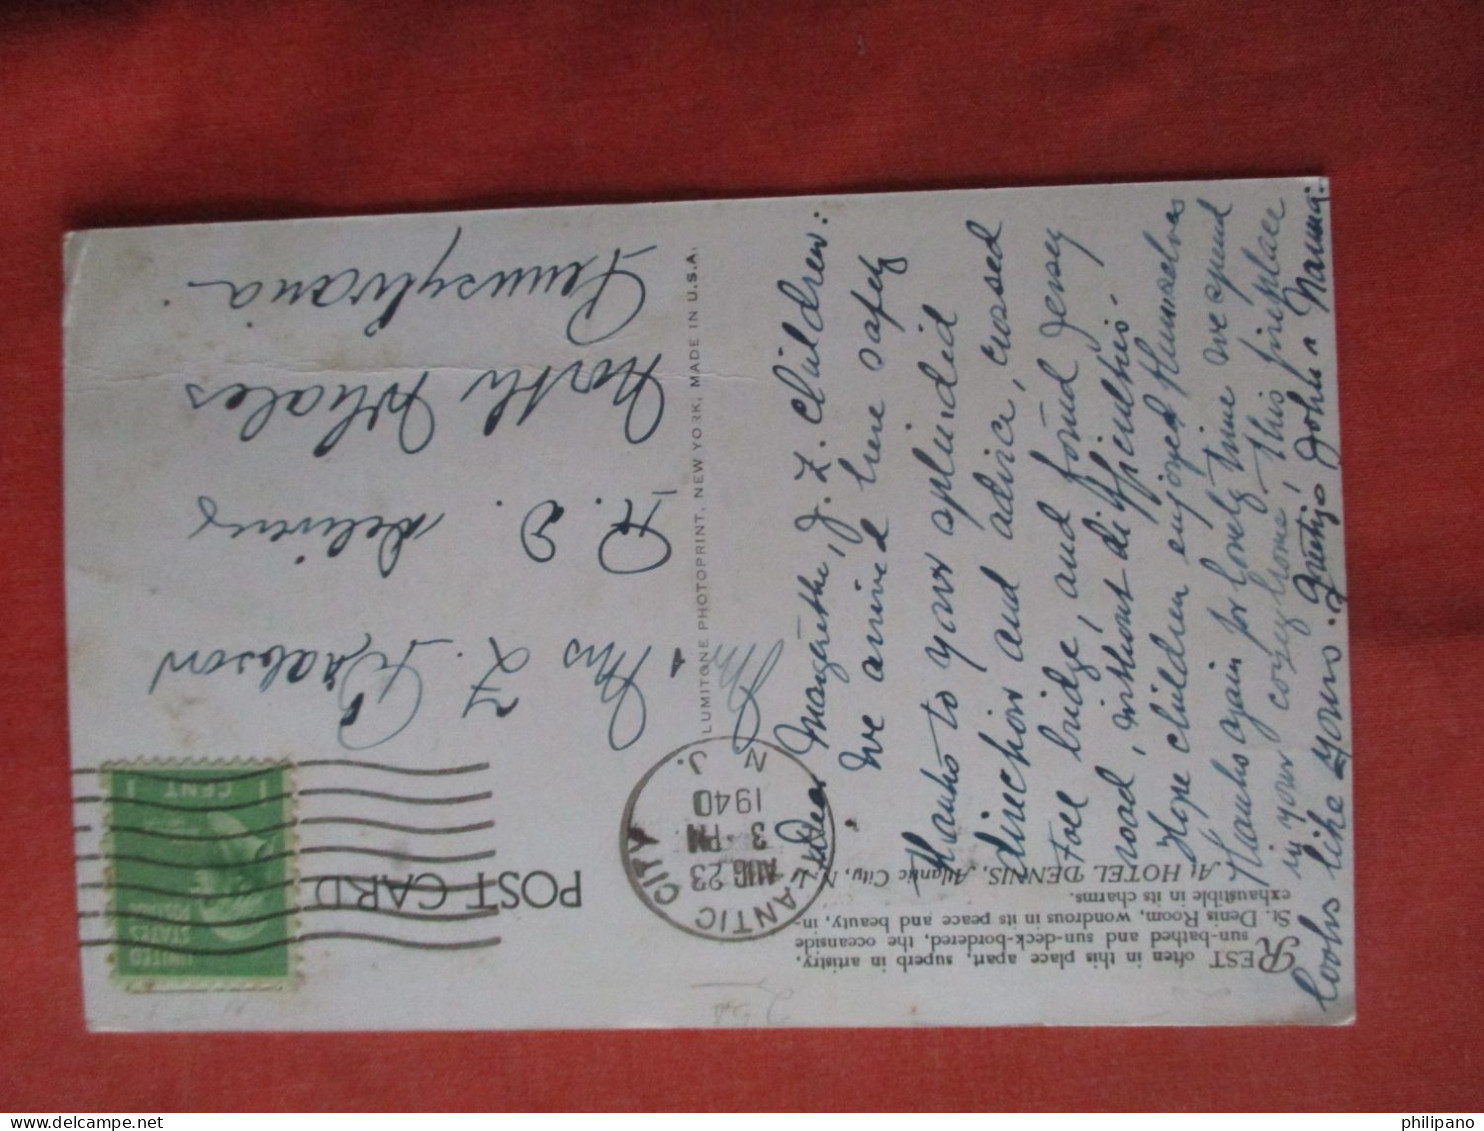 POST CARD
UNITED
STATES
1 CENT 1
ATLANTIC CITY
AUG 23
3 PM
1940
N. J.
REST often in this place apart, superb in artistry,
sun-bathed and sun-deck-bordered, the oceanside
St. Denis Room, wondrous in its peace and beauty, in-
exhaustible in its charms.
At HOTEL DENNIS, Atlantic City, N. J.
Dear Margarethe, J. Z. Children:
we arrived here safely
Thanks to your splendid
direction and advice, crossed
toll bridge, and found Jersey
road, without difficulties.
Hope children enjoyed themselves
Thanks again for lovely time we spend
in your cozy home! This fireplace
looks like yours. John & Nanna.
LUMITONE PHOTOPRINT, NEW YORK, MADE IN U.S.A.
Mr & Mrs Z.
R. D. delivery
North Whales
Pennsylvania
philipano